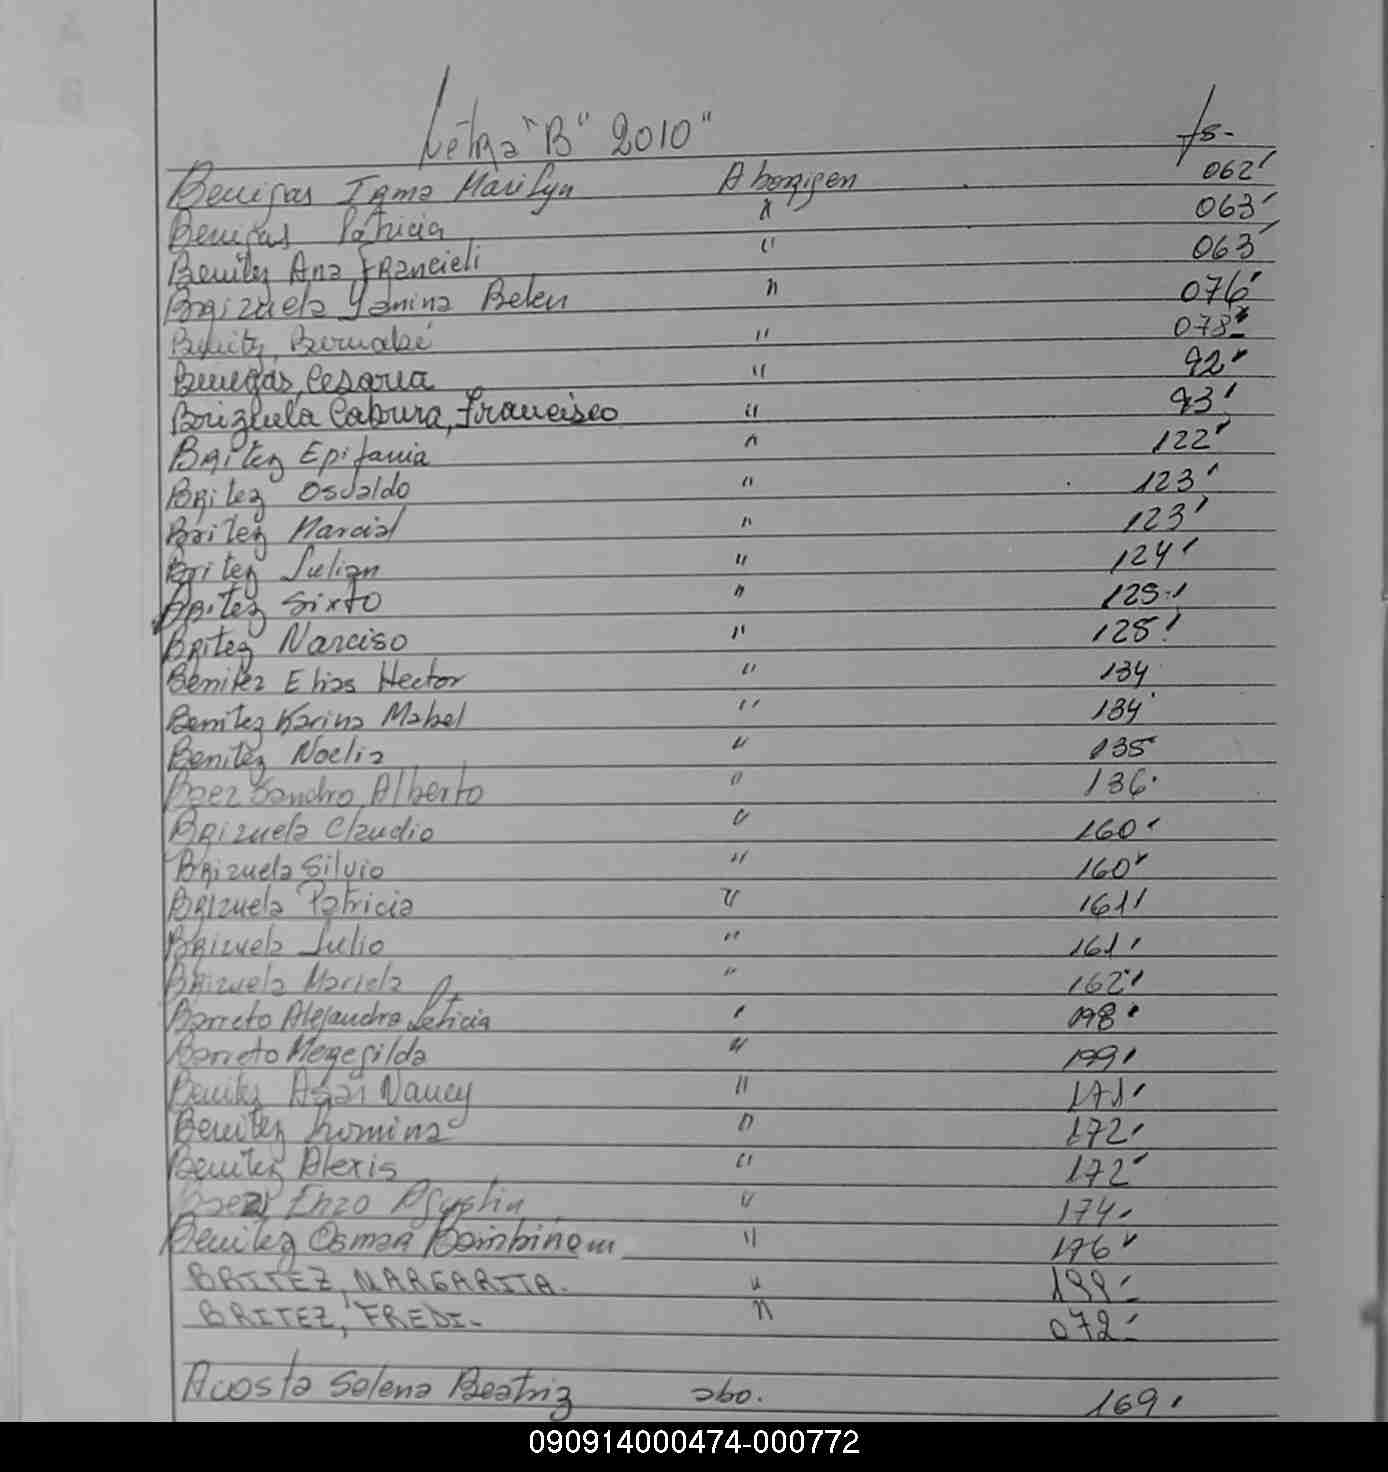 Letra "B" 2010" fs-
Benigas Irma Marilyn Aborigen 062
Benigas Patricia " 063
Benitez Ana Francieli " 063
Brizuela Yanina Belen " 076
Benitez, Bernabé " 078
Benegas, Cesaria " 92
Brizuela Cabrera, Francisco " 93
Britez Epifania " 122
Britez Osvaldo " 123
Britez Marcial " 123
Britez Julian " 124
Britez Sixto " 125
Britez Narciso " 125
Benitez Elias Hector " 134
Benitez Karina Mabel " 134
Benitez Noelia " 135
Baez Sandro Alberto " 136
Brizuela Claudio " 160
Brizuela Silvio " 160
Brizuela Patricia " 161
Brizuela Julio " 161
Brizuela Mariela " 162
Barreto Alejandra Leticia " 198
Barreto " 199
Benitez Nancy " 171
Benitez Romina " 172
Benitez Alexis " 172
Baez Enzo Agustin " 174
Benitez Osmar " 176
BRITEZ, MARGARITA. " 199
BRITEZ, FREDI- " 072
Acosta Selena Beatriz abo. 169
090914000474-000772